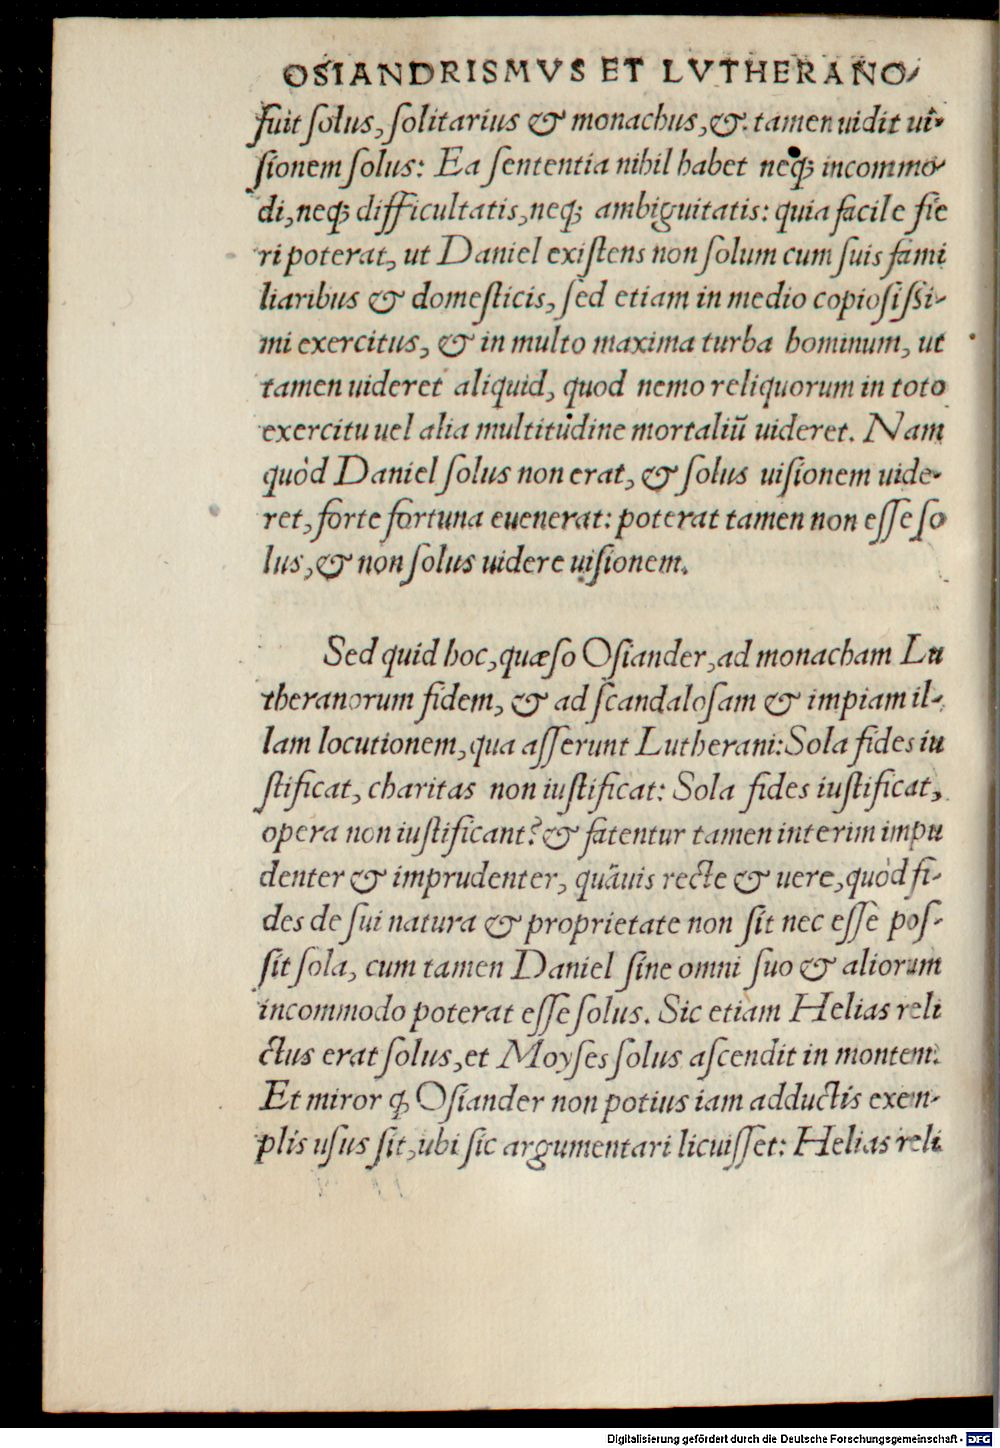 OSIANDRISMVS ET LVTHERANO-
fuit ſolus, ſolitarius & monachus, &. tamen uidit ui-
ſionem ſolus: Ea ſententia nihil habet neq́; incommo-
di, neq́; difficultatis, neq́; ambiguitatis: quia facile fie
ri poterat, ut Daniel exiſtens non ſolum cum ſuis fami
liaribus & domeſticis, ſed etiam in medio copioſiſsi-
mi exercitus, & in multo maxima turba hominum, ut
tamen uideret aliquid, quod nemo reliquorum in toto
exercitu uel alia multitudine mortaliũ uideret. Nam
quòd Daniel ſolus non erat, & ſolus uiſionem uide-
ret, forte fortuna euenerat: poterat tamen non eſſe ſo
lus, & non ſolus uidere uiſionem.
Sed quid hoc, quæſo Oſiander, ad monacham Lu
theranorum fidem, & ad ſcandaloſam & impiam il-
lam locutionem, qua aſſerunt Lutherani: Sola fides iu
ſtificat, charitas non iuſtificat: Sola fides iuſtificat,
opera non iuſtificant? & fatentur tamen interim impu
denter & imprudenter, quãuis recte & uere, quòd fi-
des de ſui natura & proprietate non ſit nec eſſe poſ-
ſit ſola, cum tamen Daniel ſine omni ſuo & aliorum
incommodo poterat eſſe ſolus. Sic etiam Helias reli
ctus erat ſolus, et Moyſes ſolus aſcendit in montem.
Et miror ꝙ Oſiander non potius iam adductis exem-
plis uſus ſit, ubi ſic argumentari licuiſſet: Helias reli
Digitalisierung gefördert durch die Deutsche Forschungsgemeinschaft - DFG